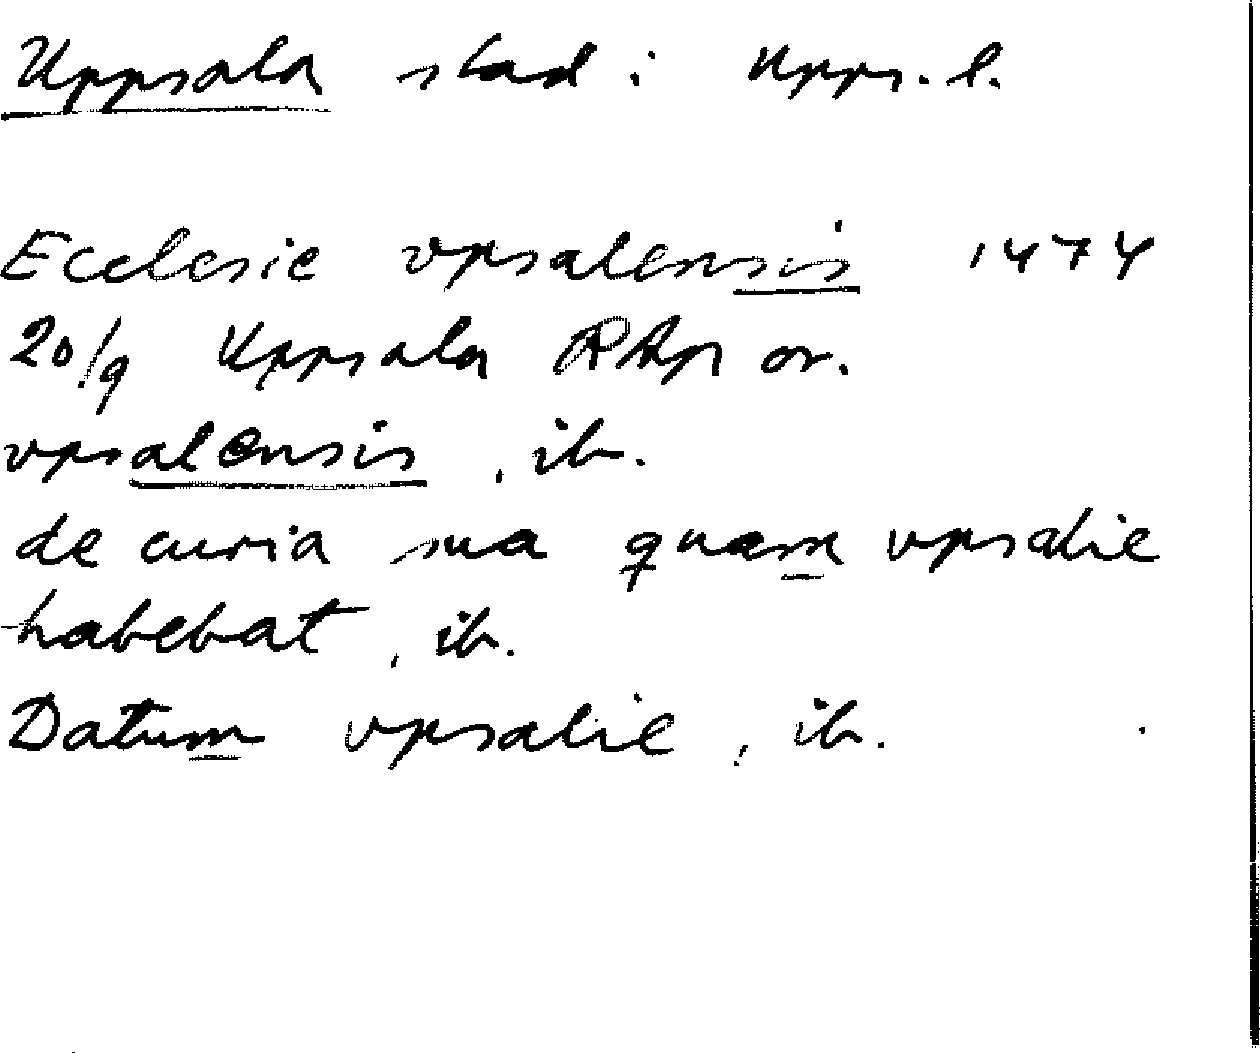 Uppsala stad : Upps. l.
Ecclesie vpsalensis 1474
20/9 Uppsala RAp or.
vpsalensis, ib.
de curia sua quam vpsalie
habebat, ib.
Datum vpsalie, ib.